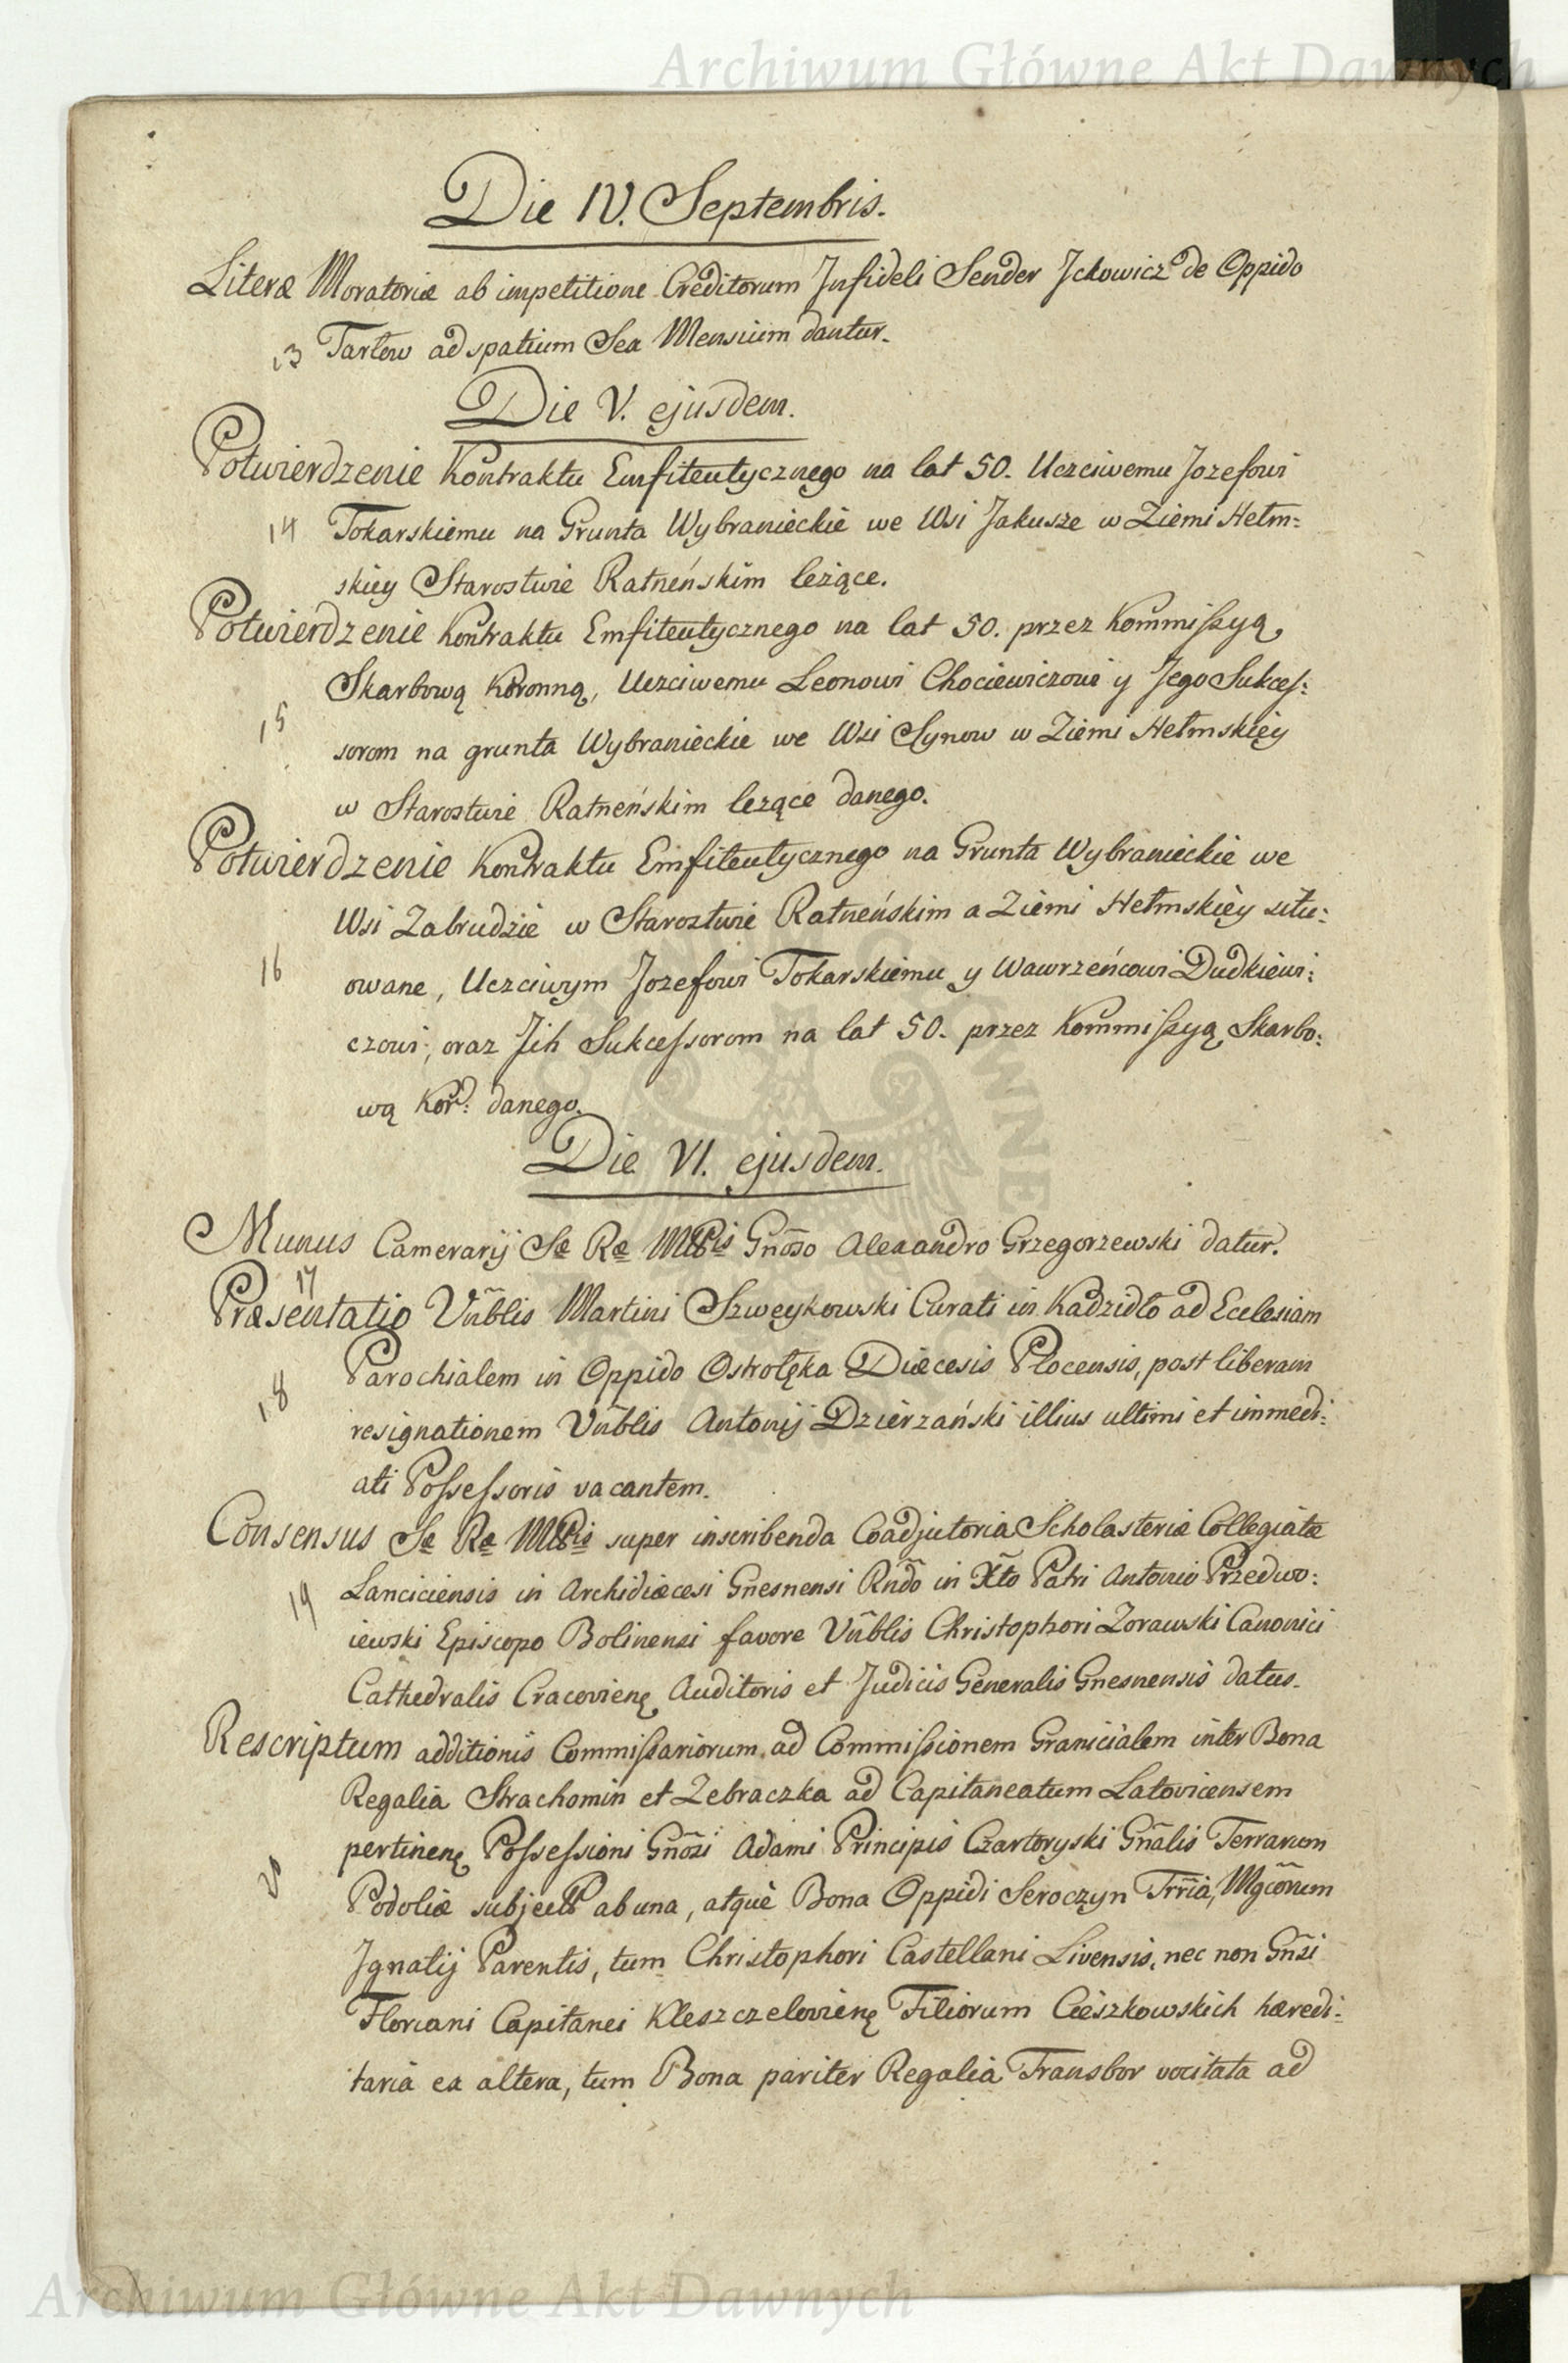 Archiwum Główne Akt Dawnych
Die IV. Septembris.
Literæ Moratoriæ ab impetitione Creditorum Infideli Sender Ickowicz de Oppido
13 Tarłow ad spatium Sex Mensium dantur.
Die V. ejusdem.
Potwierdzenie Kontraktu Emfiteutycznego na lat 50. Uczciwemu Jozefowi
14 Tokarskiemu na Grunta Wybranieckie we Wsi Jakusze w Ziemi Hełm:
skiey Starostwie Ratneńskim leżące.
Potwierdzenie Kontraktu Emfiteutycznego na lat 50. przez Kommiſsyą
Skarbową Koronną, Uczciwemu Leonowi Chociewiczowi y Jego Sukceſ:
15 sorom na grunta Wybranieckie we Wsi Synow w Ziemi Hełmskiey
w Starostwie Ratneńskim leżące danego.
Potwierdzenie Kontraktu Emfiteutycznego na Grunta Wybranieckie we
Wsi Zabrudzie w Starostwie Ratneńskim a Ziemi Hełmskiey situ:
16 owane, Uczciwym Jozefowi Tokarskiemu y Wawrzeńcowi Dudkiewi:
czowi, oraz Jih Sukceſsorom na lat 50. przez Kommiſsyą Skarbo:
wą Kor: danego.
Die VI. ejusdem.
Munus Camerarij Sæ Ræ Mttis Gñoso Alexandro Grzegorzewski datur.
17
Præsentatio Vñblis Martini Szweykowski Curati in Kadzidło ad Ecclesiam
Parochialem in Oppido Ostrołęka Diæcesis Plocensis, post liberam
18 resignationem Vñblis Antonij Dzierzański illius ultimi et immedi:
ati Poſseſsoris vacantem.
Consensus Sæ Ræ Mttis super inscribenda Coadjutoria Scholasteriæ Collegiatæ
19 Lanciciensis in Archidiæcesi Gnesnensi Rñdo in Xto Patri Antonio Przedwo:
iewski Episcopo Bolinensi favore Vñblis Christophori Zorawski Canonici
Cathedralis Cracovienę Auditoris et Judicis Generalis Gnesnensis datus.
Rescriptum additionis Commiſsariorum ad Commiſsionem Granicialem inter Bona
Regalia Strachomin et Zebraczka ad Capitaneatum Latovicensem
pertinenę Poſseſsioni Gñosi Adami Principis Czartoryski Gñalis Terrarum
20 Podoliæ subjectt ab una, atque Bona Oppidi Seroczyn Trria, Mgcorum
Ignatij Parentis, tum Christophori Castellani Livensis, nec non Gñsi
Floriani Capitanei Kleszczelovienę Filiorum Cieszkowskich hæredi:
taria ex altera, tum Bona pariter Regalia Transbor vocitata ad
Archiwum Główne Akt Dawnych